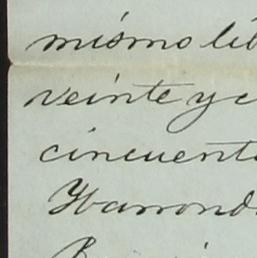 mismo lib
veinte y c
cincuenta
Ybarrond